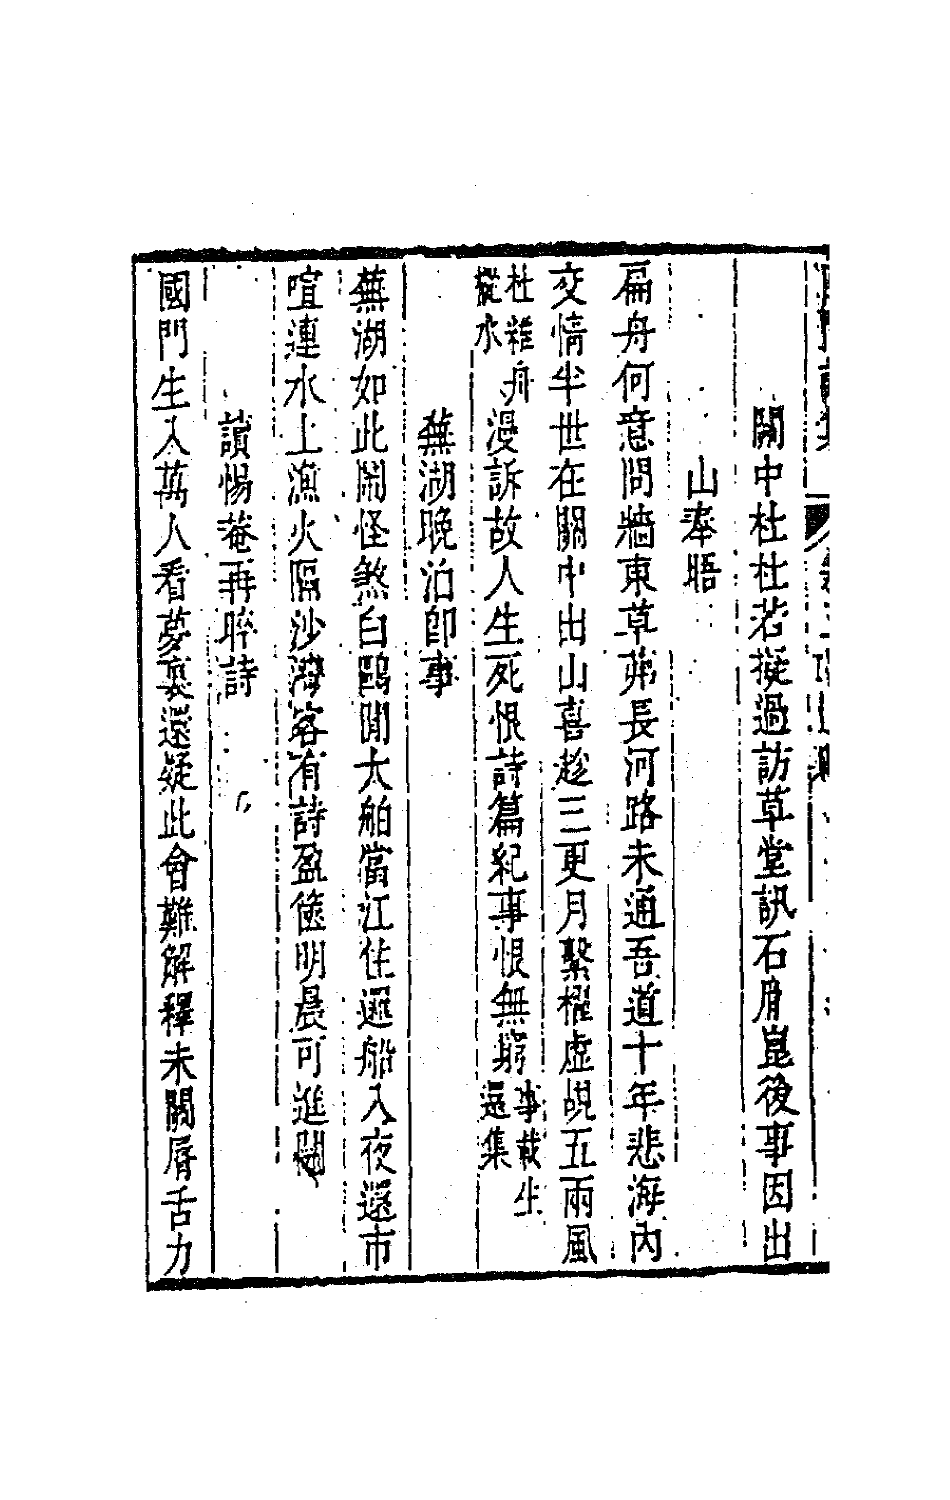 關中杜杜若擬過訪草堂訊石眉崑後事因出
山奉晤
扁舟何意問牆東草茀長河路未通吾道十年悲海內
交情半世在關中出山喜趁三更月繫櫂虛占五兩風
杜雖舟
從水
漫訴故人生死恨詩篇紀事恨無窮
事載生
還集
蕪湖晚泊卽事
蕪湖如此鬧怪煞白鷗閒大舶當江住邏船入夜還市
喧連水上漁火隔沙灣客有詩盈篋明晨可進關
讀惕菴再聹詩
國門生入萬人看夢裏還疑此會難解釋未關脣舌力